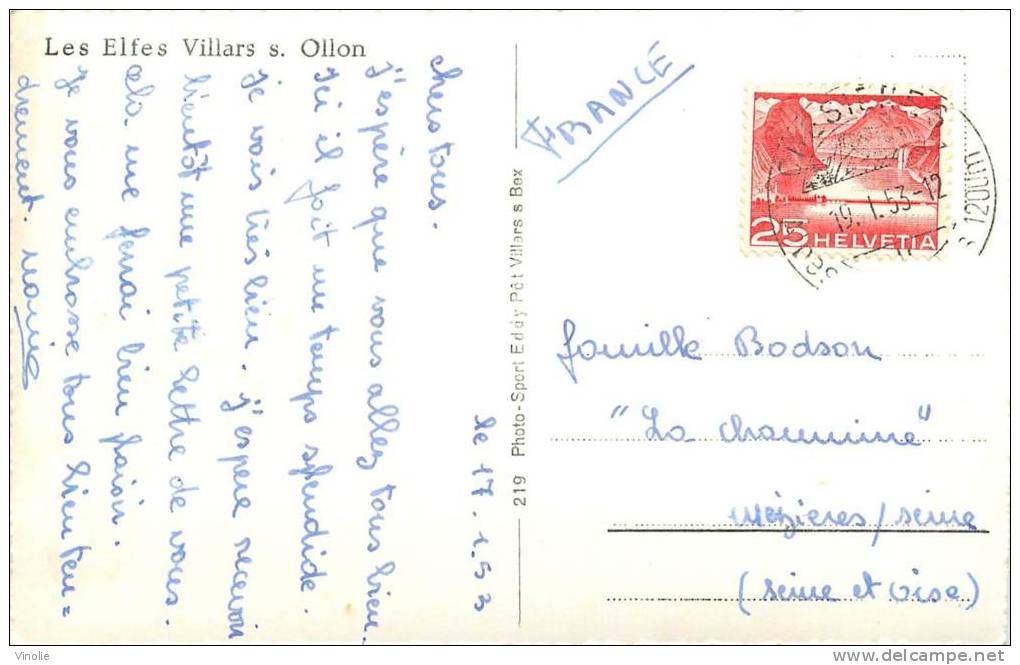 Les Elfes Villars s. Ollon
le 17.1.53
chers tous.
j'espère que vous allez tous bien.
Ici il fait un temps splendide.
je vais très bien. j'espere recevoir
bientôt une petite lettre de vous.
cela me ferai bien plaisir.
Je vous embrasse tous bien ten=
drement. Marie
219 Photo-Sport Eddy Pôt Villars s Bex
FRANCE
25 HELVETIA
19.1.53-12
famille Bodson
"La chaumine"
Mézières/seine
(seine et Oise)
Vinolie
www.delcampe.net